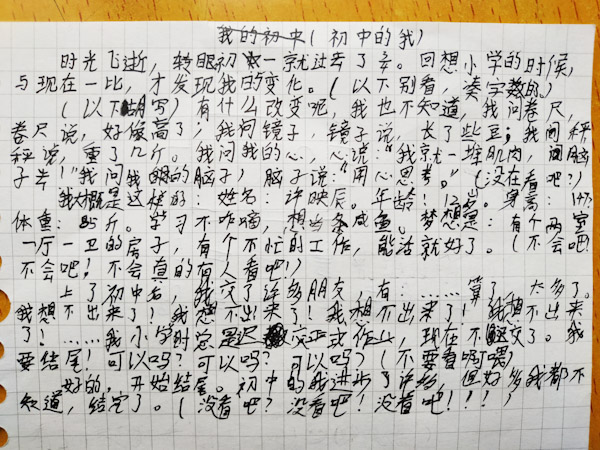 我的初中(初中的我)
时光飞逝,转眼初一就过去了辛。回想小学的时候,
与现在一比,才发现我的变化。(以下别看,凑字数的)
(以下胡写)有什么改变呢,我也不知道,我问卷尺,
卷尺说,好像高了,我问镜子,镜子说,长了些豆;我问秤
秤说,重了几斤。我问我的心,心说:“我就一堆肌肉,问脑
子去!”我问我的脑子,脑子说:“用心思考。”(没在看吧?)
我大概是这样的:姓名:许映辰。年龄!12岁。身高:147
体重:85斤。学习不咋嘀,想当条咸鱼。梦想是:有个两室
一厅一卫的房子,有个不忙的工作,能活就好了。(不会吧!
不会吧!不会真的有人看吧!)
上了初中名,我交了许多朋友,有:……算了,太多了。
我想不出来了!我想不出来了!我想不出来了!我想不出来
了!……我小学时总是迟交正式作业,现在不交了。我
要结尾!可以吗?可以吗?可以吗?(不要看啊喂)
好的,开始结尾。初中的我进步了许多,但好多我都不
知道,结完了。(没看吧?没看吧!没看吧!!!)